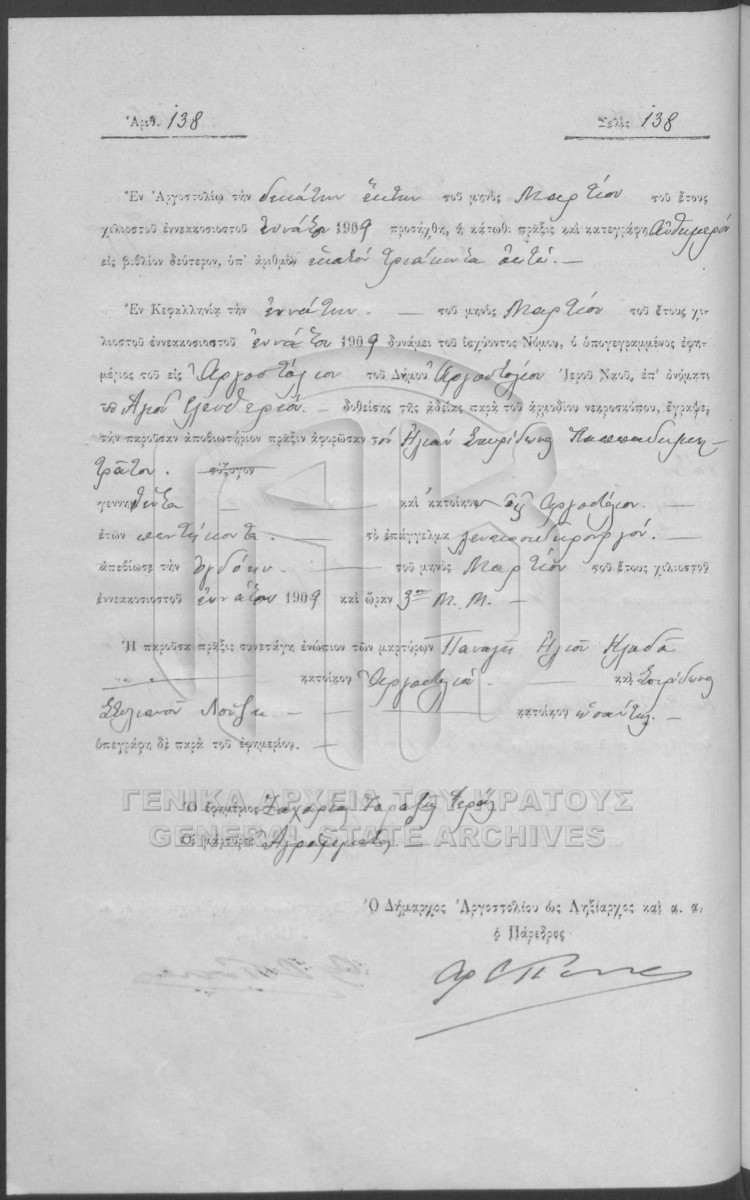 Ἀριθ. 138
Σελὶς 138
Ἐν Ἀργοστολίῳ τὴν δεκάτην ἕκτην τοῦ μηνὸς Μαρτίου τοῦ ἔτους
χιλιοστοῦ ἐννεακοσιοστοῦ ἐννάτου 1909 προσήχθη, ἡ κάτωθι πρᾶξις καὶ κατεγράφη Αὐθημερόν
εἰς βιβλίον δεύτερον, ὑπ' ἀριθμὸν ἑκατὸν τριάκοντα ὀκτώ. —
Ἐν Κεφαλληνίᾳ τὴν ἐννάτην. — τοῦ μηνὸς Μαρτίου τοῦ ἔτους χι-
λιοστοῦ ἐννεακοσιοστοῦ ἐννάτου 1909 δυνάμει τοῦ ἰσχύοντος Νόμου, ὁ ὑπογεγραμμένος ἐφη-
μέριος τοῦ εἰς Ἀργοστόλιον τοῦ Δήμου Ἀργοστολίου Ἱεροῦ Ναοῦ, ἐπ' ὀνόματι
τοῦ Ἁγίου Ἐλευθερίου. — δοθείσης τῆς ἀδείας παρὰ τοῦ ἁρμοδίου νεκροσκόπου, ἔγραψε,
τὴν παροῦσαν ἀποβιωτήριον πρᾶξιν ἀφορῶσαν τόν Ἠλίαν Σπυρίδωνος Παππαδημη-
τράτον. — σύζυγον
γεννηθέντα — καὶ κατοίκου εἰς Ἀργοστόλιον. —
ἐτῶν πεντήκοντα. — τὸ ἐπάγγελμα λευκοσιδηρουργόν. —
ἀπεβίωσε τὴν ὀγδόην. — τοῦ μηνὸς Μαρτίου τοῦ ἔτους χιλιοστοῦ
ἐννεακοσιοστοῦ ἐννάτου 1909 καὶ ὥραν 3ην Μ.Μ. —
Ἡ παροῦσα πρᾶξις συνετάγη ἐνώπιον τῶν μαρτύρων Παναγῆ Ἠλιοῦ Κλαδᾶ
— κατοίκου Ἀργοστολίου. — καὶ Σπυρίδωνος
Στυλιανοῦ Λούζη — κατοίκου ὡσαύτως. —
ὑπεγράφη δὲ παρὰ τοῦ ἐφημερίου. —
Ὁ ἐφημέριος Ζαχαρίας Ἱερεύς
Οἱ μάρτυρες Ἀγράμματοι —
ΓΕΝΙΚΑ ΑΡΧΕΙΑ ΤΟΥ ΚΡΑΤΟΥΣ
GENERAL STATE ARCHIVES
Ὁ Δήμαρχος Ἀργοστολίου ὡς Ληξίαρχος καὶ α. α.
ὁ Πάρεδρος